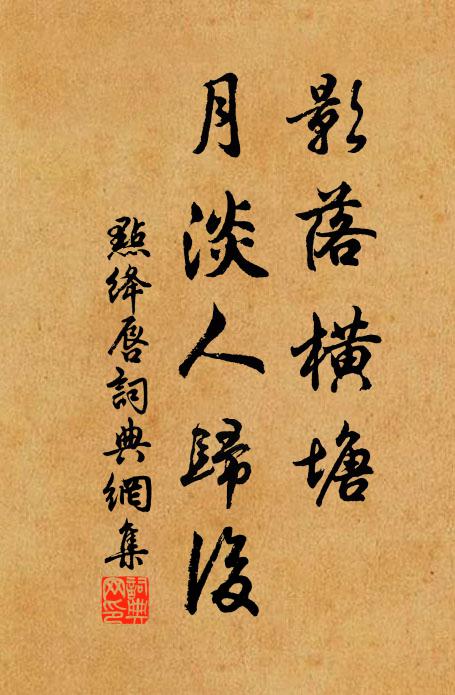 影落橫塘
月淡人歸後
點絳唇詞典網集
詞典网印